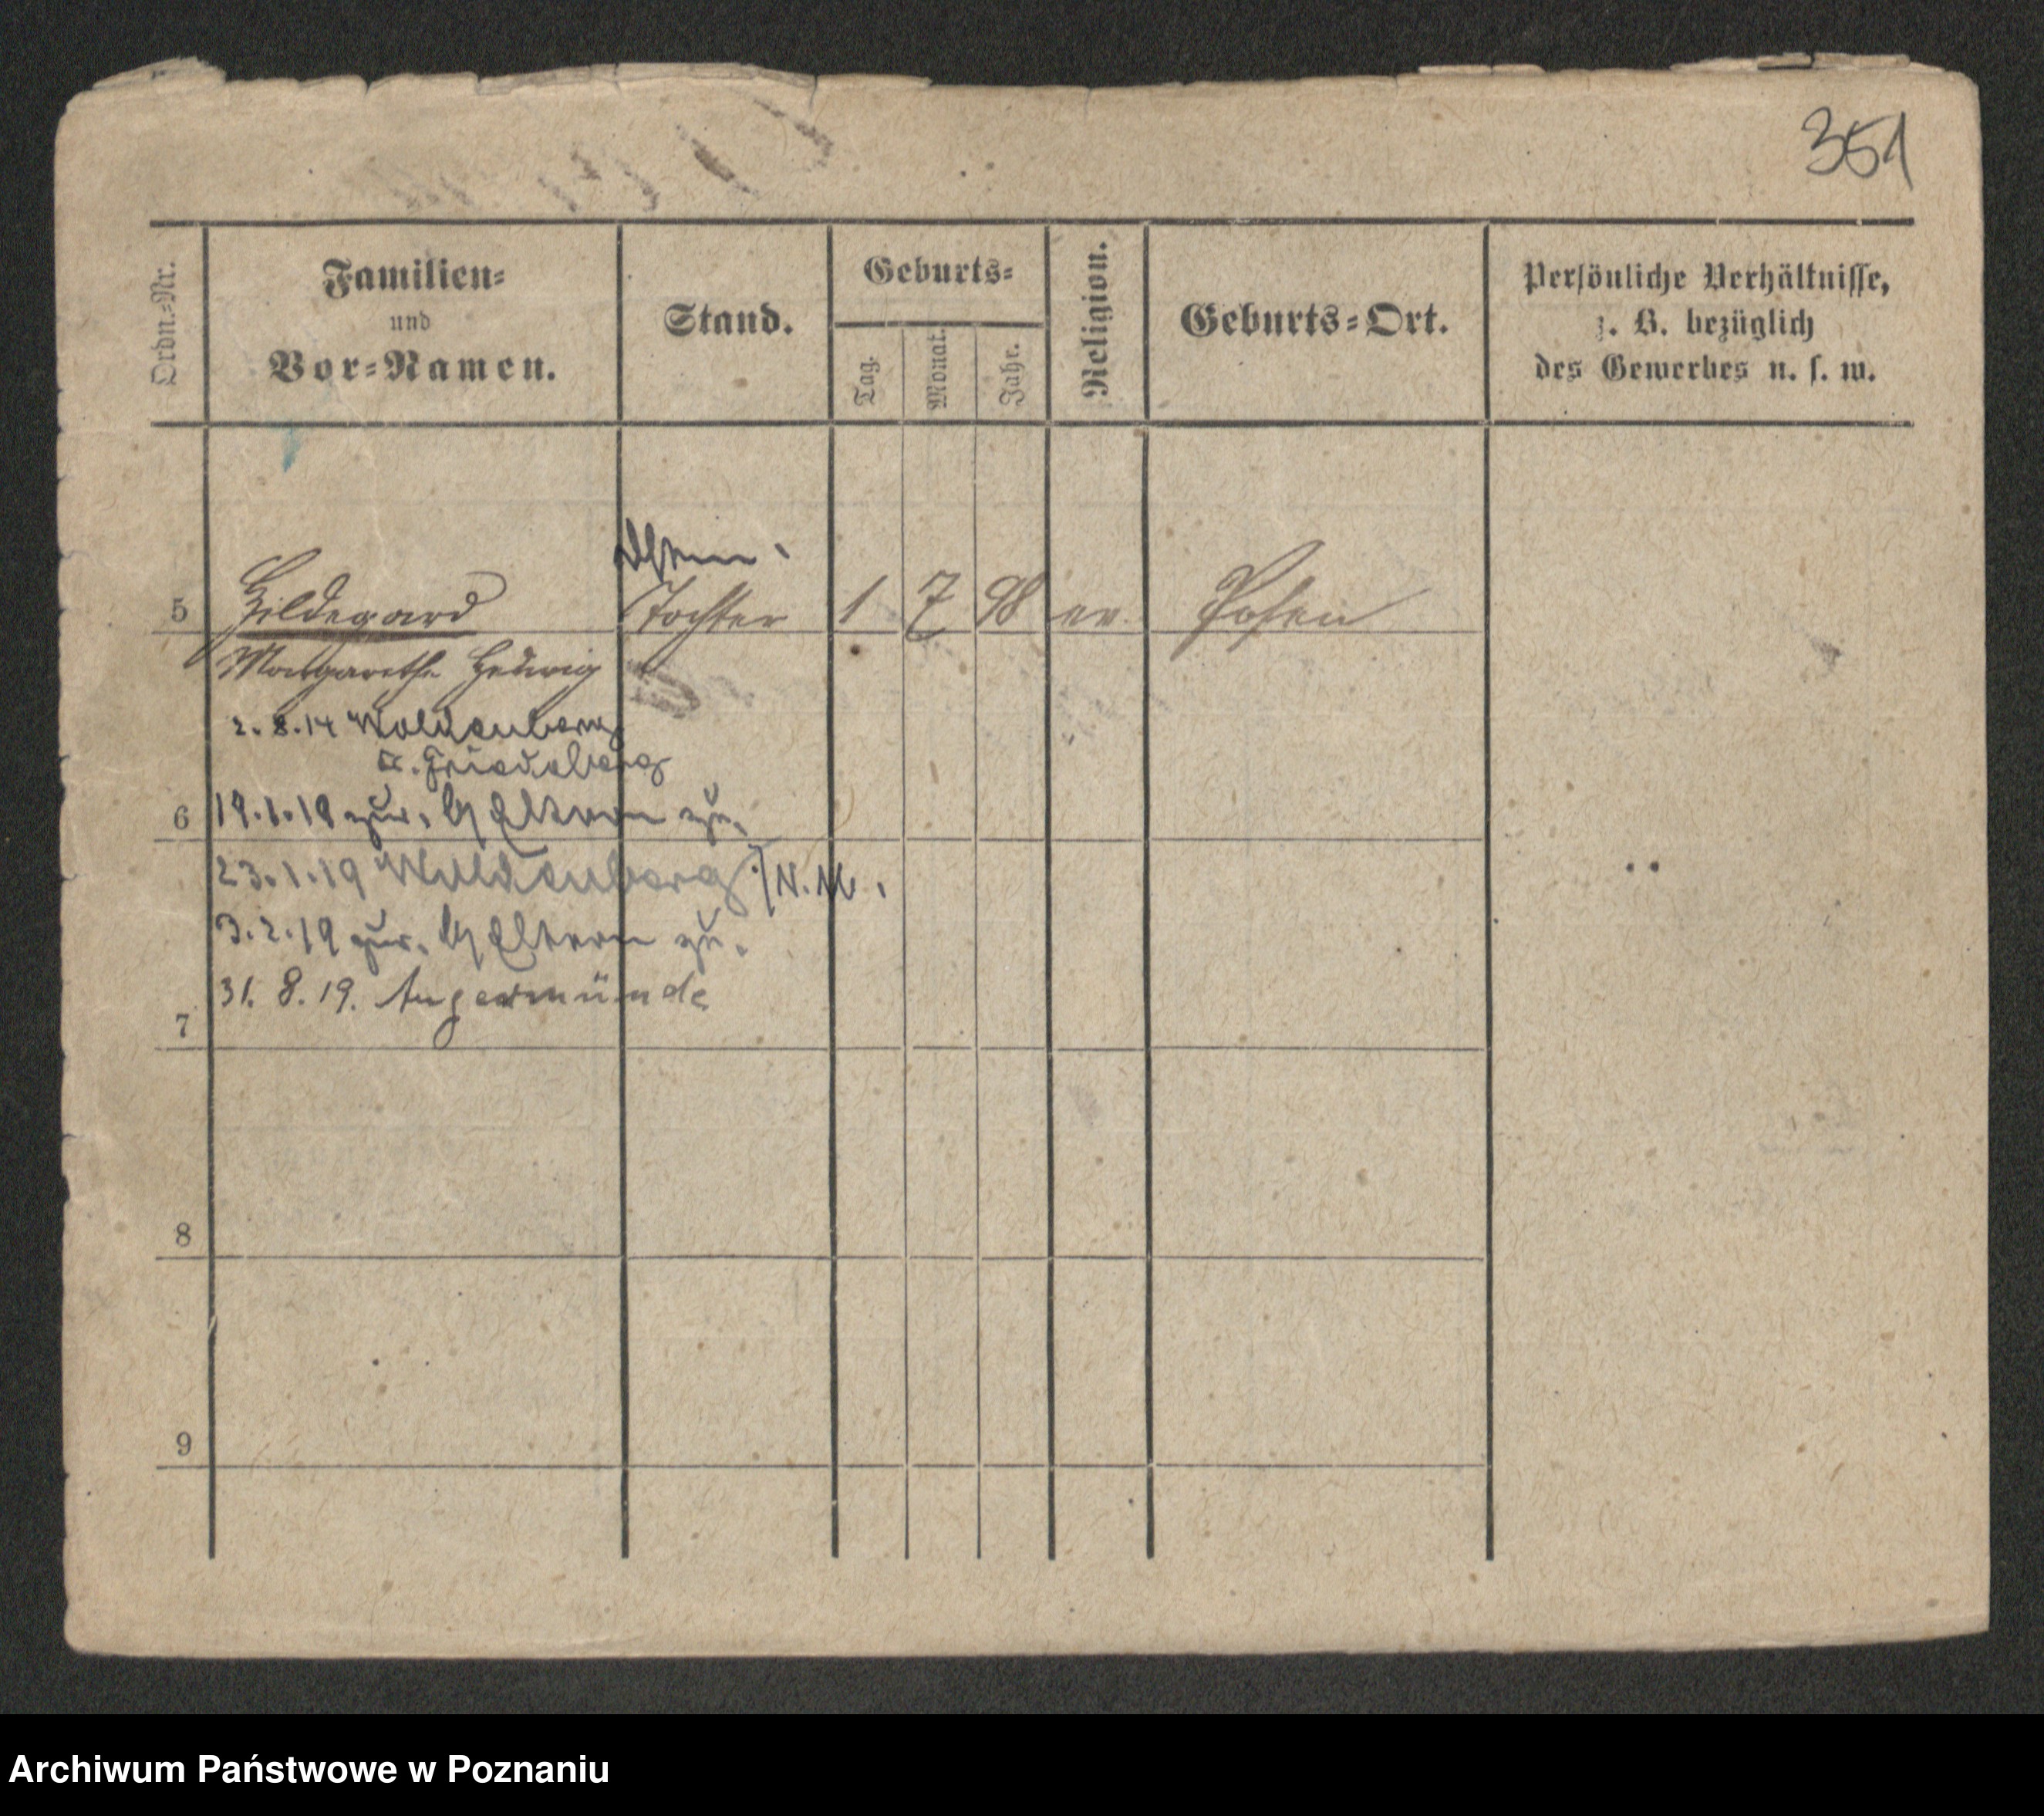 351
Ordn.-Nr.
Familien-
und
Vor-Namen.
Stand.
Geburts-
Tag.
Monat.
Jahr.
Religion.
Geburts-Ort.
Persönliche Verhältnisse,
z. B. bezüglich
des Gewerbes u. s. w.
5 Hildegard Tochter 1 7 98 ev. Posen
Margarethe Hedwig
2.8.14 Woldenberg
Kr. Friedeberg
6 19.1.19 zur. b/ Eltern zu.
23.1.19 Woldenberg /N.M.
3.2.19 zur. b/ Eltern zu.
31. 8. 19. Angermünde
7
8
9
Archiwum Państwowe w Poznaniu